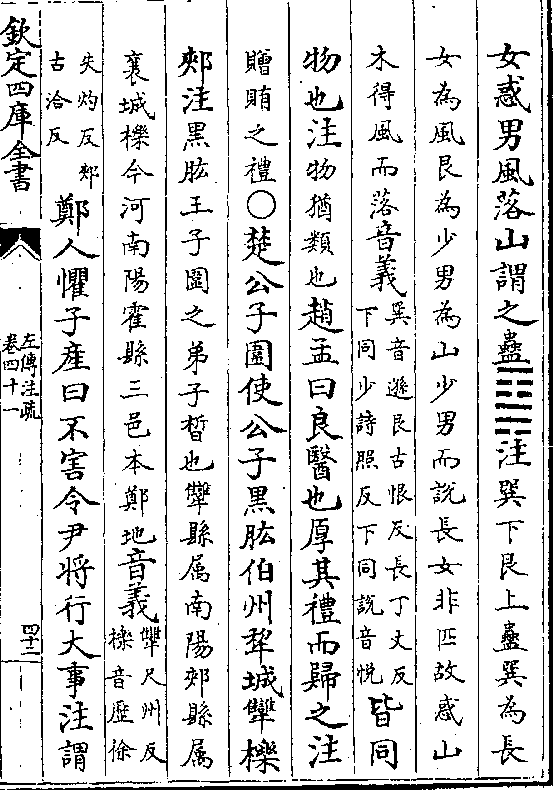 女惑男風落山謂之蠱䷑注巽下艮上蠱巽為長
女為風艮為少男為山少男而說長女非匹故惑山
木得風而落音義巽音遜艮古恨反長丁丈反
下同少詩照反下同說音悅皆同
物也注物猶類也趙孟曰良醫也厚其禮而歸之注
贈賄之禮○楚公子圍使公子黑肱伯州犂城犨櫟
郟注黑肱王子圍之弟子晳也犨縣属南陽郟縣属
襄城櫟今河南陽霍縣三邑本鄭地音義犨尺州反
櫟音歷徐
失灼反郟
古洽反鄭人懼子產曰不害令尹將行大事注謂
欽定四庫全書
左傳注疏
卷四十一
四十二